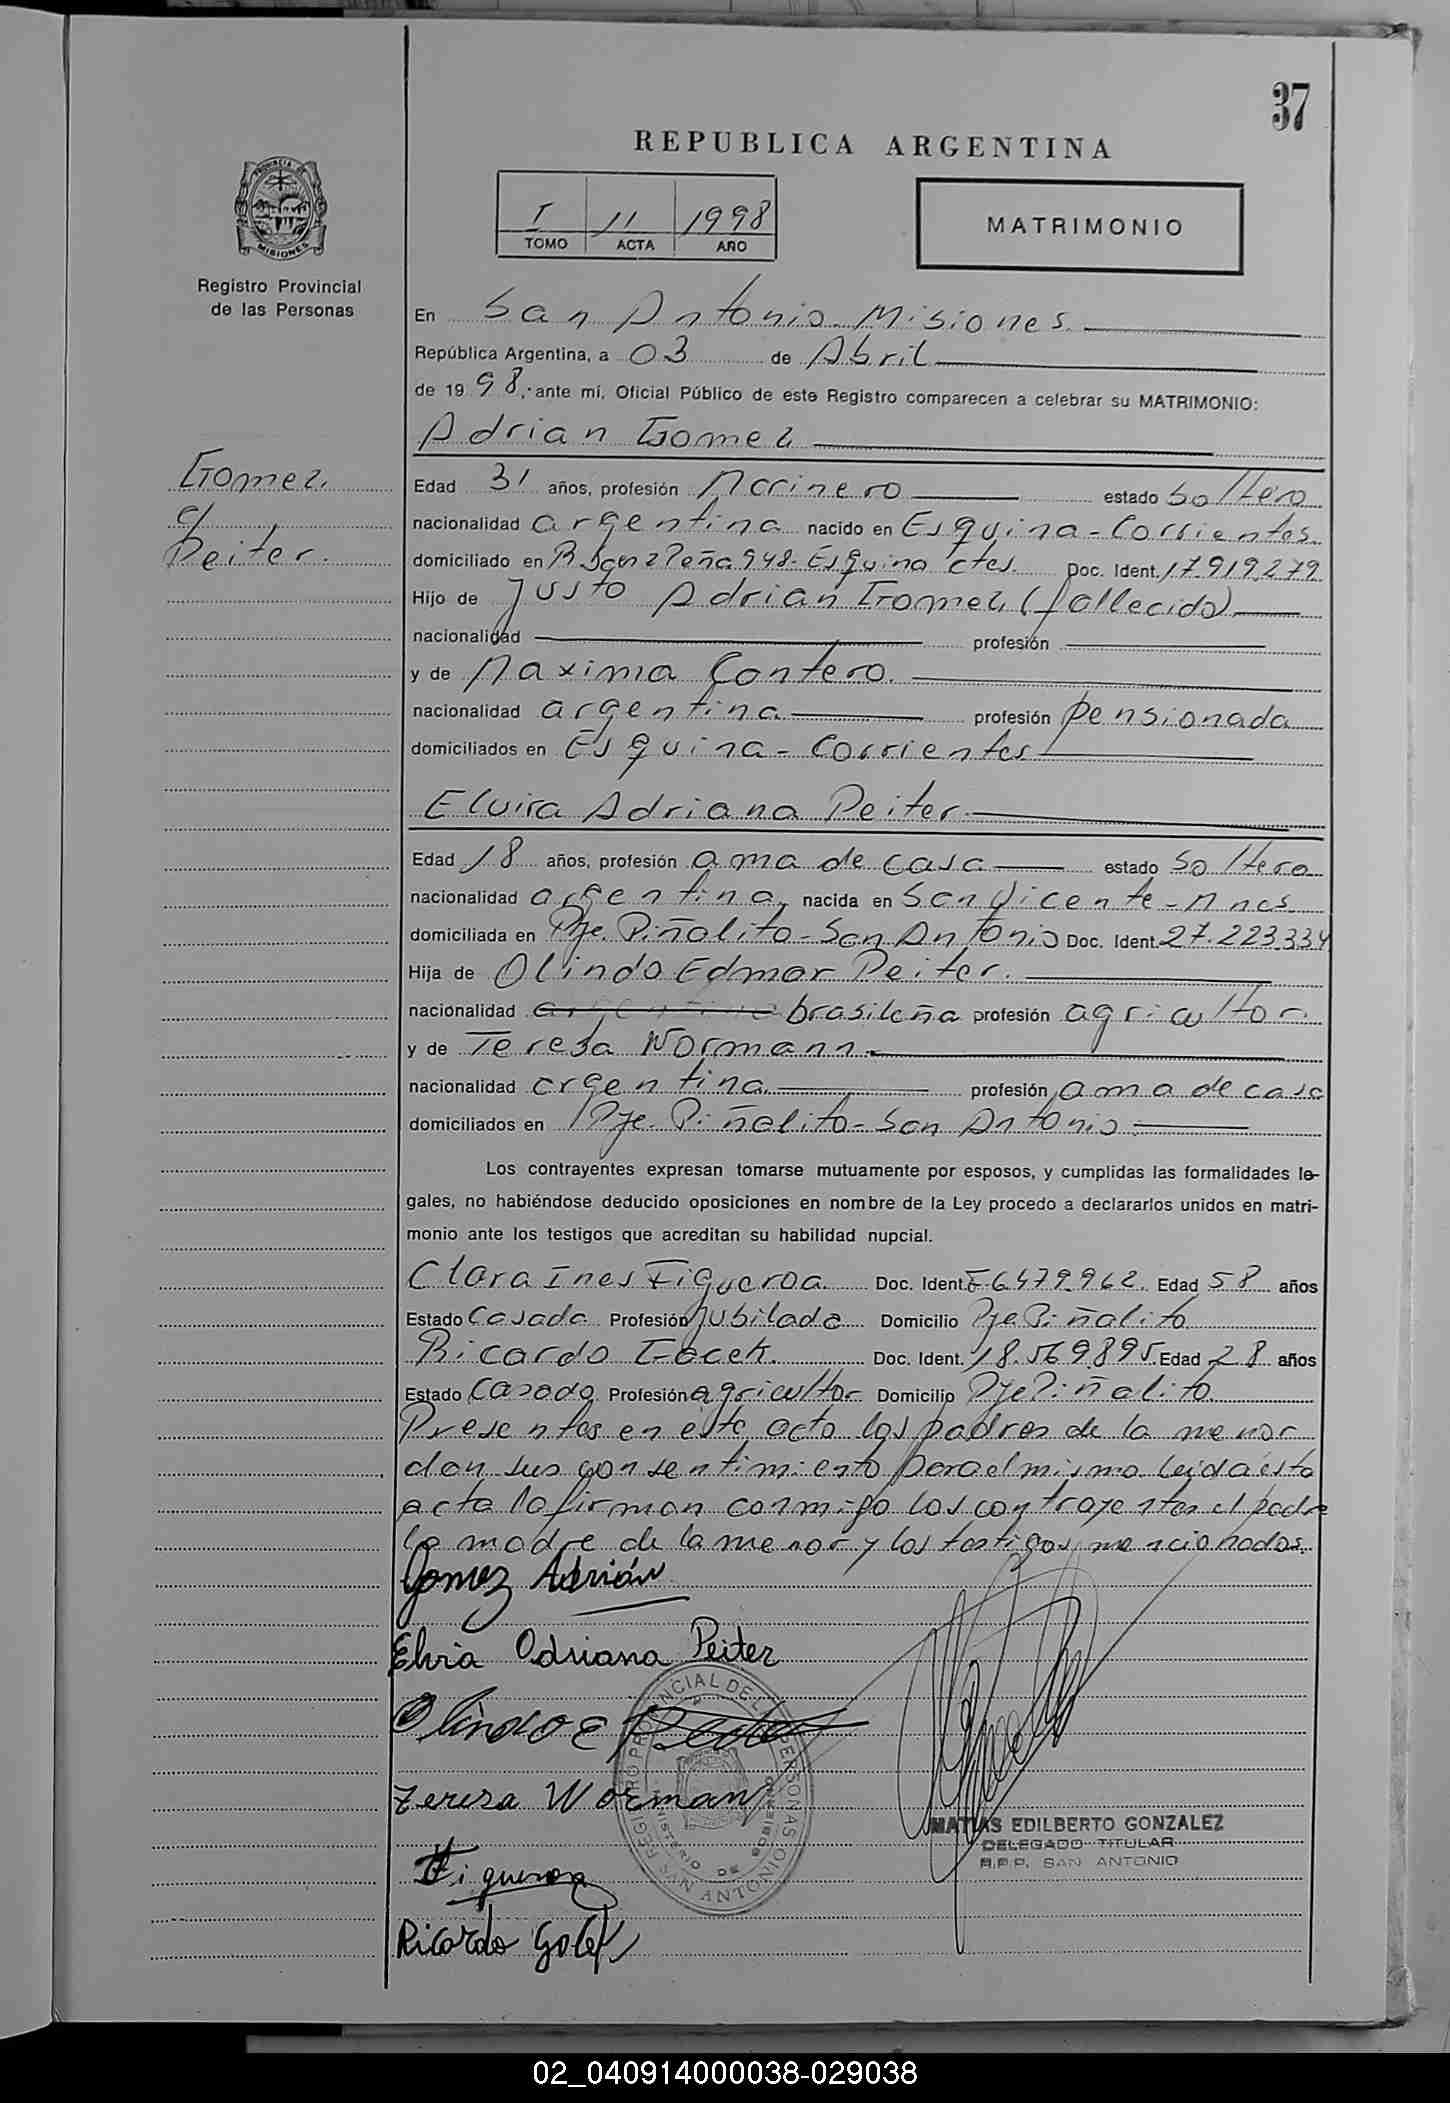 37
REPUBLICA ARGENTINA
PROVINCIA DE
MISIONES
Registro Provincial
de las Personas
I 11 1998
TOMO ACTA AÑO
MATRIMONIO
En San Antonio Misiones.
República Argentina, a 03 de Abril
de 1998, ante mí, Oficial Público de este Registro comparecen a celebrar su MATRIMONIO:
Adrian Gomez
Gomez
c/
Peiter.
Edad 31 años, profesión Marinero estado Soltero
nacionalidad argentina nacido en Esquina - Corrientes.
domiciliado en R. Saenz Peña 948 - Esquina Ctes. Doc. Ident. 17.919.279
Hijo de Justo Adrian Gomez (fallecido)
nacionalidad profesión
y de Maxima Contero.
nacionalidad argentina profesión pensionada
domiciliados en Esquina - Corrientes
Elvira Adriana Peiter.
Edad 18 años, profesión ama de casa estado Soltera
nacionalidad argentina, nacida en San Vicente - Mnes
domiciliada en Pje. Piñalito - San Antonio Doc. Ident. 27.223.334
Hija de Olindo Edmar Peiter.
nacionalidad argentina brasileña profesión agricultor.
y de Teresa Wormann.
nacionalidad argentina profesión ama de casa
domiciliados en Pje. Piñalito - San Antonio
Los contrayentes expresan tomarse mutuamente por esposos, y cumplidas las formalidades le-
gales, no habiéndose deducido oposiciones en nombre de la Ley procedo a declararlos unidos en matri-
monio ante los testigos que acreditan su habilidad nupcial.
Clara Ines Figueroa. Doc. Ident. F 6479.962. Edad 58 años
Estado Casada Profesión Jubilada Domicilio Pje Piñalito
Ricardo Gocek. Doc. Ident. 18.569.895 Edad 28 años
Estado Casado Profesión agricultor Domicilio Pje Piñalito
Presentes en este acto los padres de la menor
dan sus consentimiento para el mismo leida esta
acta la firman conmigo los contrayentes el padre
la madre de la menor y los testigos mencionados.
Gomez Adrián
Elvira Adriana Peiter
Olindo E Peiter
Teresa Worman
Figueroa
Ricardo
REGISTRO PROVINCIAL DE LAS PERSONAS
MINISTERIO DE GOBIERNO
SAN ANTONIO
MATIAS EDILBERTO GONZALEZ
DELEGADO TITULAR
R.P.P. SAN ANTONIO
02_040914000038-029038